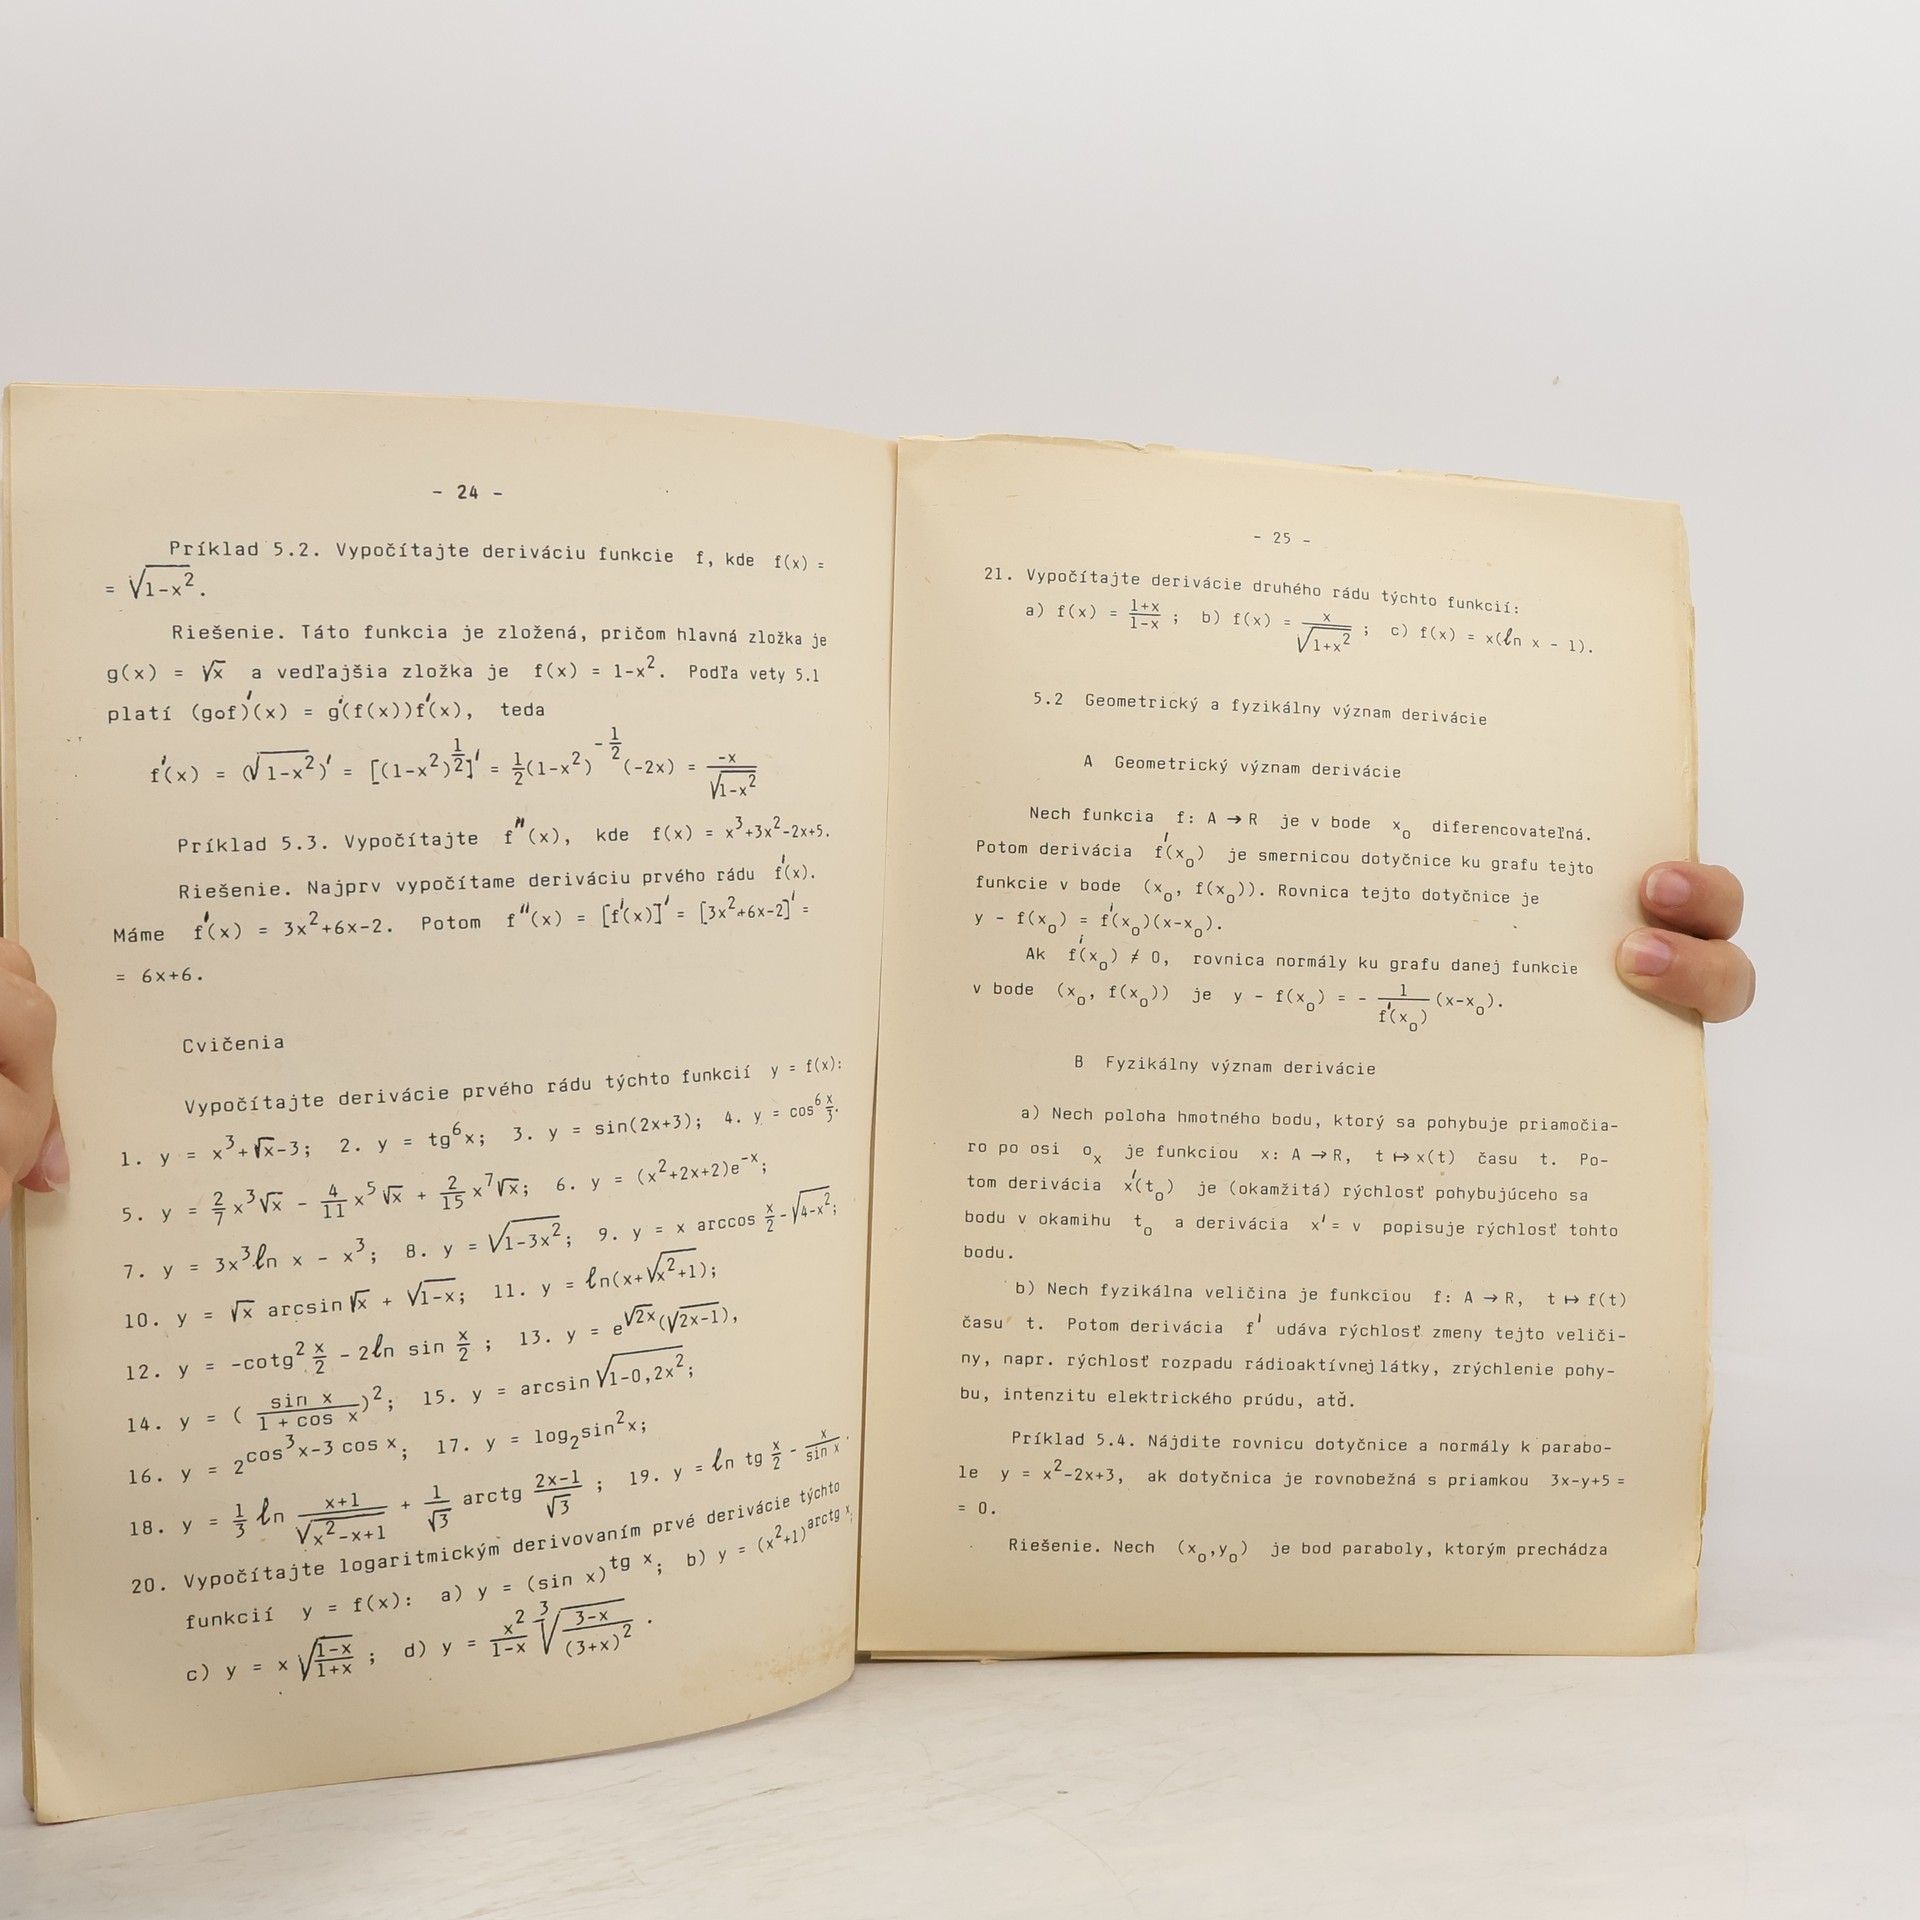 - 24 -
Príklad 5.2. Vypočítajte deriváciu funkcie f, kde f(x) =
= √(1-x²).
Riešenie. Táto funkcia je zložená, pričom hlavná zložka je
g(x) = √x a vedľajšia zložka je f(x) = 1-x². Podľa vety 5.1
platí (gof)'(x) = g'(f(x))f'(x), teda
f'(x) = (√(1-x²))' = [(1-x²)^(1/2)]' = 1/2(1-x²)^(-1/2)(-2x) = -x/√(1-x²)
Príklad 5.3. Vypočítajte f"(x), kde f(x) = x³+3x²-2x+5.
Riešenie. Najprv vypočítame deriváciu prvého rádu f'(x).
Máme f'(x) = 3x²+6x-2. Potom f"(x) = [f'(x)]' = [3x²+6x-2]' =
= 6x+6.
Cvičenia
Vypočítajte derivácie prvého rádu týchto funkcií y = f(x):
1. y = x³+√x-3; 2. y = tg⁶x; 3. y = sin(2x+3); 4. y = cos⁶ x/3.
5. y = 2/7 x³√x - 4/11 x⁵√x + 2/15 x⁷√x; 6. y = (x²+2x+2)e^(-x);
7. y = 3x³ln x - x³; 8. y = √(1-3x²); 9. y = x arccos x/2 - √(4-x²);
10. y = √x arcsin √x + √(1-x); 11. y = ln(x+√(x²+1));
12. y = -cotg² x/2 - 2ln sin x/2 ; 13. y = e^(√2x)(√(2x-1)),
14. y = ( sin x/(1 + cos x) )²; 15. y = arcsin √(1-0,2x²);
16. y = 2^(cos³x-3 cos x); 17. y = log₂sin²x;
18. y = 1/3 ln (x+1)/√(x²-x+1) + 1/√3 arctg (2x-1)/√3 ; 19. y = ln tg x/2 - x/sin x.
20. Vypočítajte logaritmickým derivovaním prvé derivácie týchto
funkcií y = f(x): a) y = (sin x)^(tg x); b) y = (x²+1)^(arctg x);
c) y = x √((1-x)/(1+x)) ; d) y = x²/(1-x) ∛((3-x)/(3+x)²) .
- 25 -
21. Vypočítajte derivácie druhého rádu týchto funkcií:
a) f(x) = (1+x)/(1-x) ; b) f(x) = x/√(1+x²) ; c) f(x) = x(ln x - 1).
5.2 Geometrický a fyzikálny význam derivácie
A Geometrický význam derivácie
Nech funkcia f: A → R je v bode x₀ diferencovateľná.
Potom derivácia f'(x₀) je smernicou dotyčnice ku grafu tejto
funkcie v bode (x₀, f(x₀)). Rovnica tejto dotyčnice je
y - f(x₀) = f'(x₀)(x-x₀).
Ak f'(x₀) ≠ 0, rovnica normály ku grafu danej funkcie
v bode (x₀, f(x₀)) je y - f(x₀) = - 1/f'(x₀) (x-x₀).
B Fyzikálny význam derivácie
a) Nech poloha hmotného bodu, ktorý sa pohybuje priamočia-
ro po osi oₓ je funkciou x: A → R, t ↦ x(t) času t. Po-
tom derivácia x'(t₀) je (okamžitá) rýchlosť pohybujúceho sa
bodu v okamihu t₀ a derivácia x' = v popisuje rýchlosť tohto
bodu.
b) Nech fyzikálna veličina je funkciou f: A → R, t ↦ f(t)
času t. Potom derivácia f' udáva rýchlosť zmeny tejto veliči-
ny, napr. rýchlosť rozpadu rádioaktívnej látky, zrýchlenie pohy-
bu, intenzitu elektrického prúdu, atď.
Príklad 5.4. Nájdite rovnicu dotyčnice a normály k parabo-
le y = x²-2x+3, ak dotyčnica je rovnobežná s priamkou 3x-y+5 =
= 0.
Riešenie. Nech (x₀,y₀) je bod paraboly, ktorým prechádza